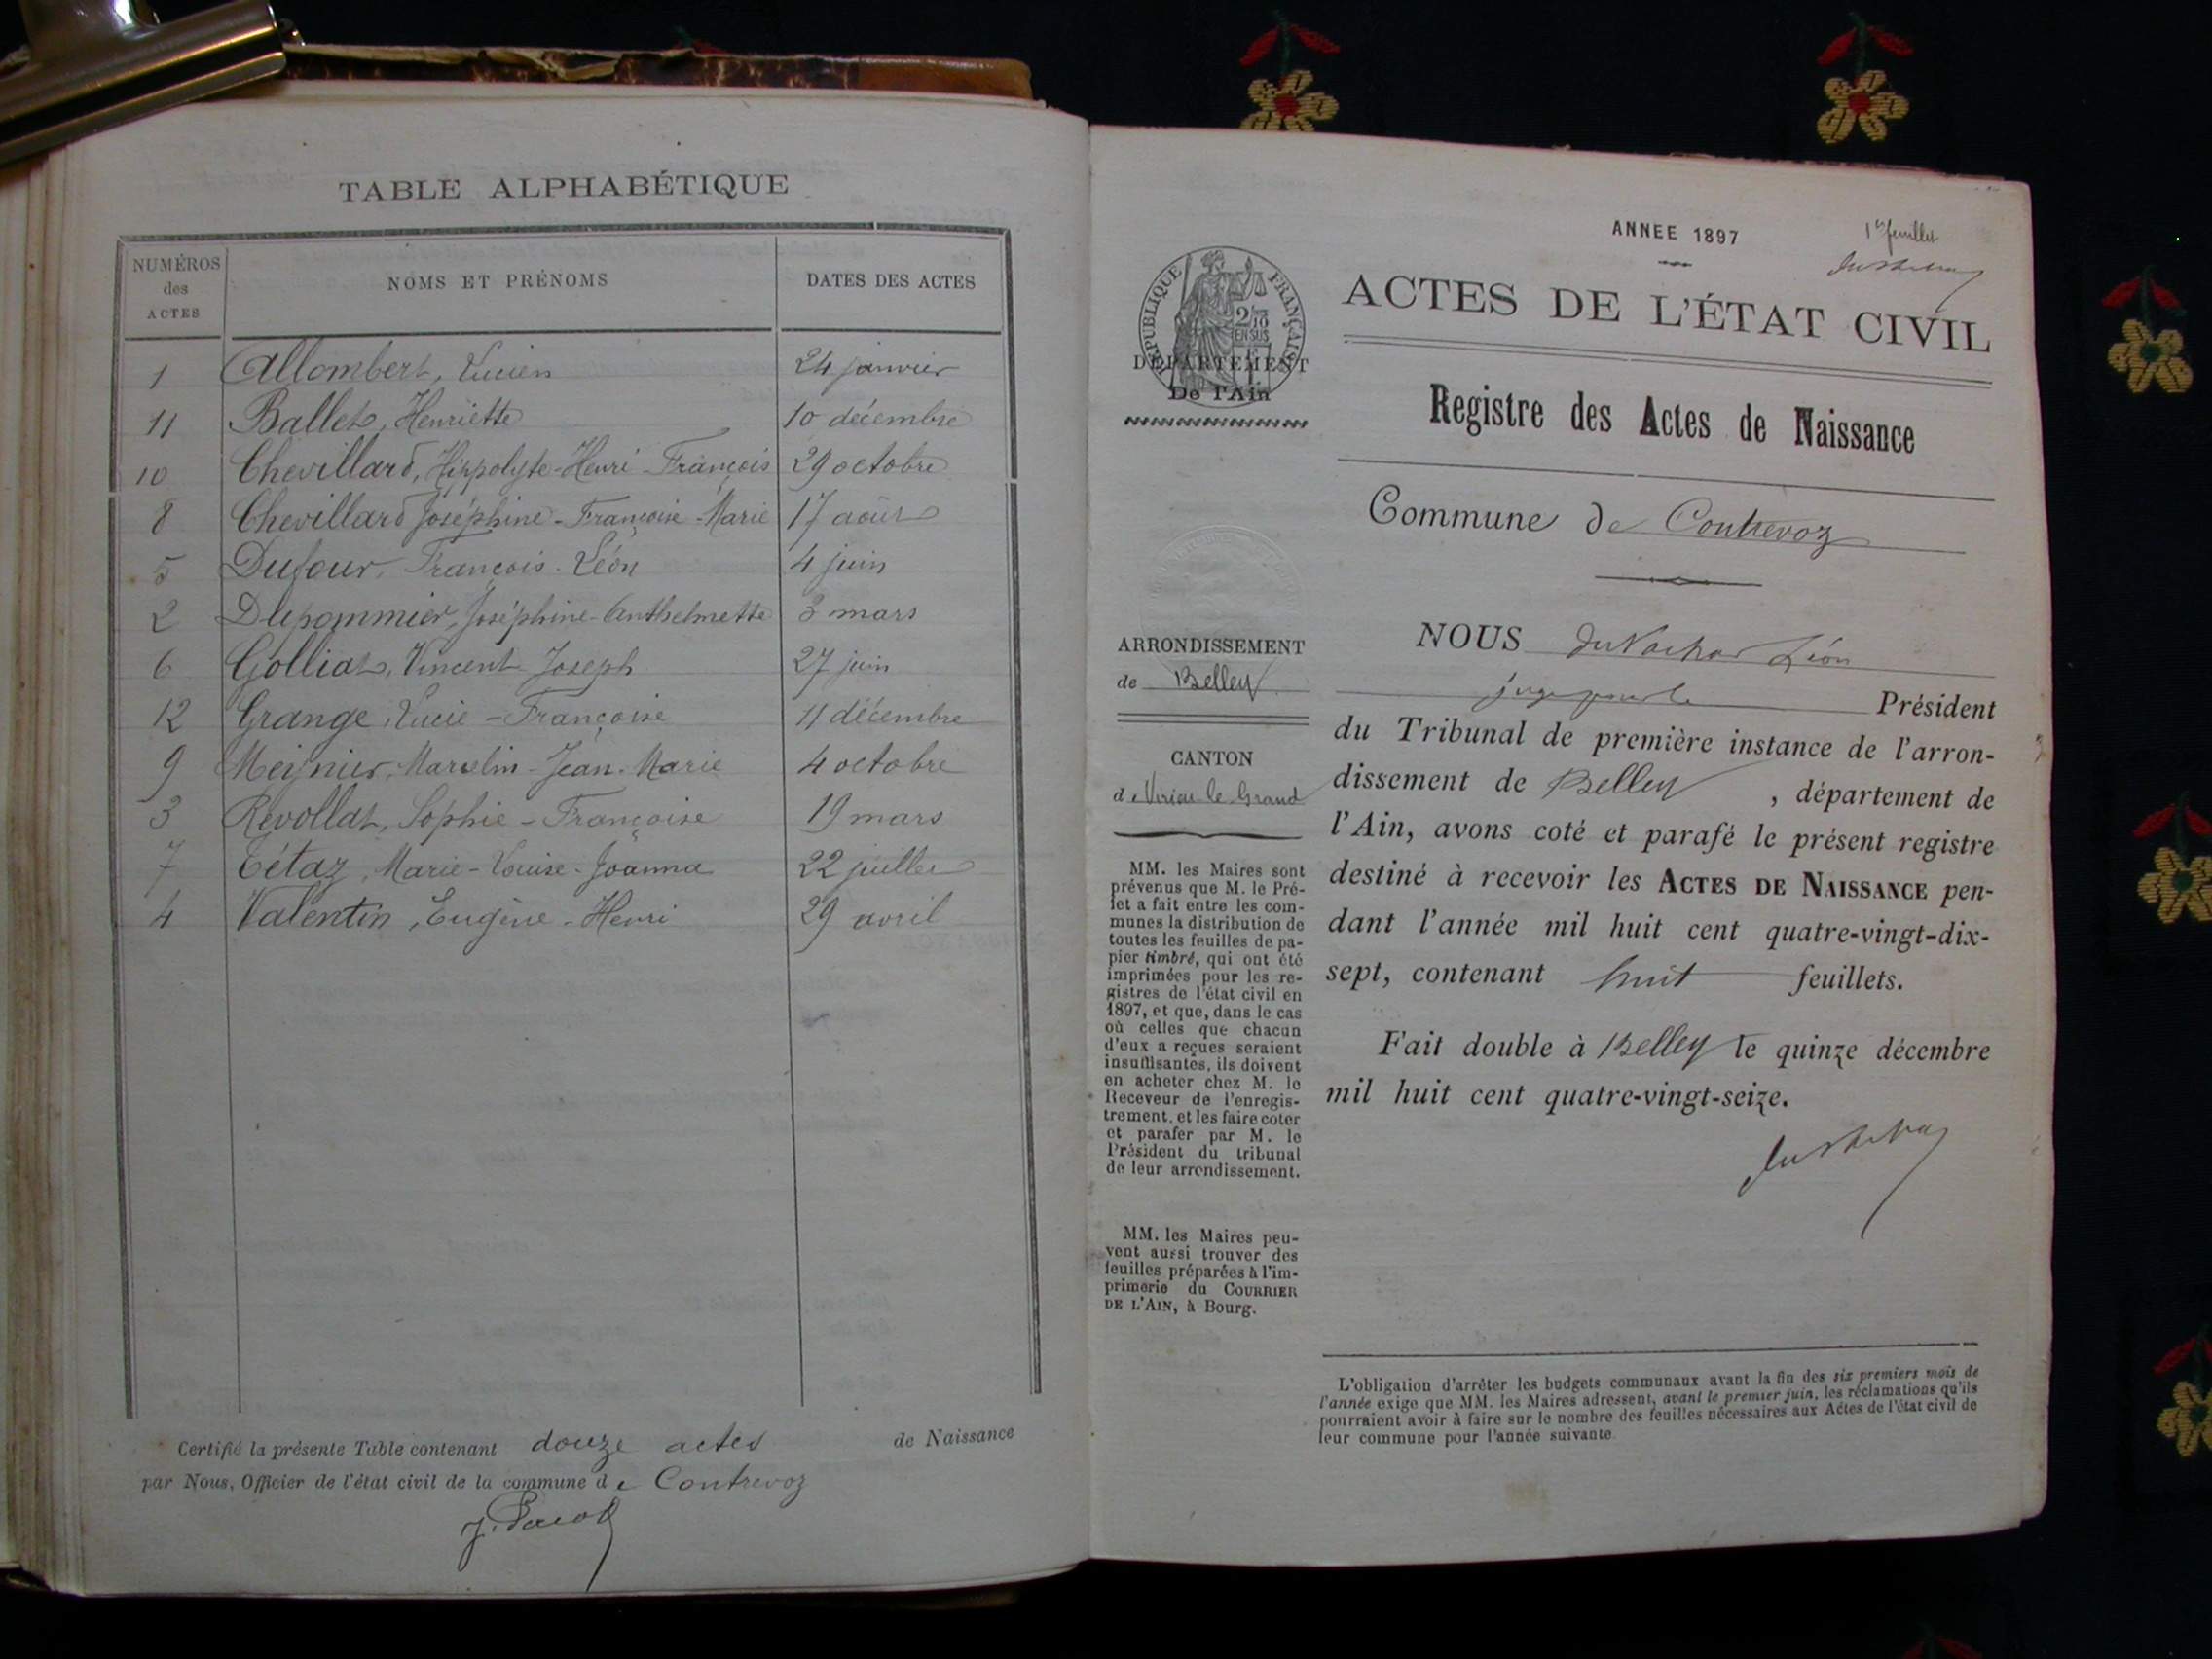 TABLE ALPHABÉTIQUE
NUMÉROS des ACTES
NOMS ET PRÉNOMS
DATES DES ACTES
1 Allombert, Lucien 24 janvier
11 Ballet, Henriette 10 décembre
10 Chevillard, Hippolyte-Henri-François 29 octobre
8 Chevillard Joséphine-Françoise-Marie 17 août
5 Dufour, François-Léon 4 juin
2 Dupommier, Joséphine-Anthelmette 3 mars
6 Golliat, Vincent-Joseph 27 juin
12 Grange, Lucie-Françoise 11 décembre
9 Meynier, Marcelin-Jean-Marie 4 octobre
3 Révollat, Sophie-Françoise 19 mars
7 Tétaz, Marie-Louise-Joanna 22 juillet
4 Valentin, Eugène-Henri 29 avril
Certifié la présente Table contenant douze actes de Naissance
par Nous, Officier de l'état civil de la commune de Contrevoz
ANNEE 1897
1er feuillet
RÉPUBLIQUE FRANÇAISE
2/10 EN SUS
DÉPARTEMENT
De l'Ain
ACTES DE L'ÉTAT CIVIL
Registre des Actes de Naissance
Commune de Contrevoz
ARRONDISSEMENT
de Belley
CANTON
de Virieu-le-Grand
MM. les Maires sont
prévenus que M. le Pré-
fet a fait entre les com-
munes la distribution de
toutes les feuilles de pa-
pier timbré, qui ont été
imprimées pour les re-
gistres de l'état civil en
1897, et que, dans le cas
où celles que chacun
d'eux a reçues seraient
insuffisantes, ils doivent
en acheter chez M. le
Receveur de l'enregis-
trement, et les faire coter
et parafer par M. le
Président du tribunal
de leur arrondissement.
MM. les Maires peu-
vent aussi trouver des
feuilles préparées à l'im-
primerie du COURRIER
DE L'AIN, à Bourg.
NOUS Léon
juge pour le Président
du Tribunal de première instance de l'arron-
dissement de Belley, département de
l'Ain, avons coté et parafé le présent registre
destiné à recevoir les ACTES DE NAISSANCE pen-
dant l'année mil huit cent quatre-vingt-dix-
sept, contenant huit feuillets.
Fait double à Belley le quinze décembre
mil huit cent quatre-vingt-seize.
L'obligation d'arrêter les budgets communaux avant la fin des six premiers mois de
l'année exige que MM. les Maires adressent, avant le premier juin, les réclamations qu'ils
pourraient avoir à faire sur le nombre des feuilles nécessaires aux Actes de l'état civil de
leur commune pour l'année suivante.